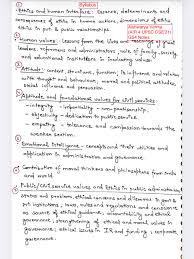 Syllabus
Ethics and human interface: Essence, determinants and
consequences of ethics in human action, dimensions of ethics,
ethics in public & private relationships.
Human values: lessons from the lives and teachings of great
leaders, reformers and administrators, role of family, society
and educational institutions in inculcating values.
Attitude: content, structure, function, its influence and relation
with thought and behaviour, moral and political attitudes,
social influence and persuasion.
Aptitude and foundational values for civil services
integrity, impartiality, non-partisanship
objectivity, dedication to public service
empathy, tolerance and compassion towards the
weaker section.
Emotional Intelligence: concepts and their utilities and
application in administration and governance.
Contribution of moral thinkers and philosophers from India
and world.
Public/civil service values and Ethics in public administration:
status and problems, ethical concerns and dilemmas in govt &
pvt institutions, laws, rules and regulations conscience
as source of ethical guidance, accountability and ethical
government, strengthening of ethical and moral values in
governance, ethical issues in IR and funding, corporate
governance.